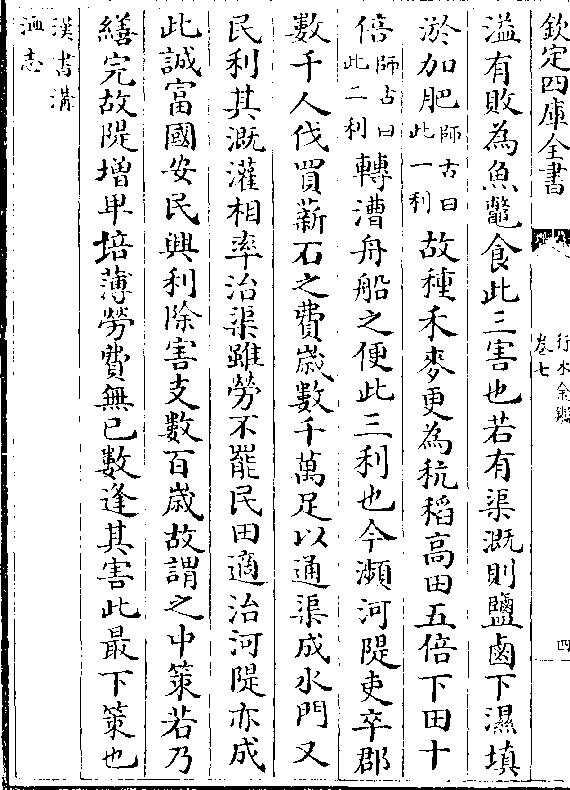 欽定四庫全書
行水金鑑
卷七
四
溢有敗為魚鼈食此三害也若有渠溉則鹽鹵下濕填
淤加肥師古曰此一利故種禾麥更為秔稻高田五倍下田十
倍師古曰此二利轉漕舟船之便此三利也今瀕河隄吏卒郡
數千人伐買薪石之費歲數千萬足以通渠成水門又
民利其溉灌相率治渠雖勞不罷民田適治河隄亦成
此誠富國安民興利除害支數百歲故謂之中策若乃
繕完故隄增卑培薄勞費無已數逢其害此最下策也
漢書溝
洫志